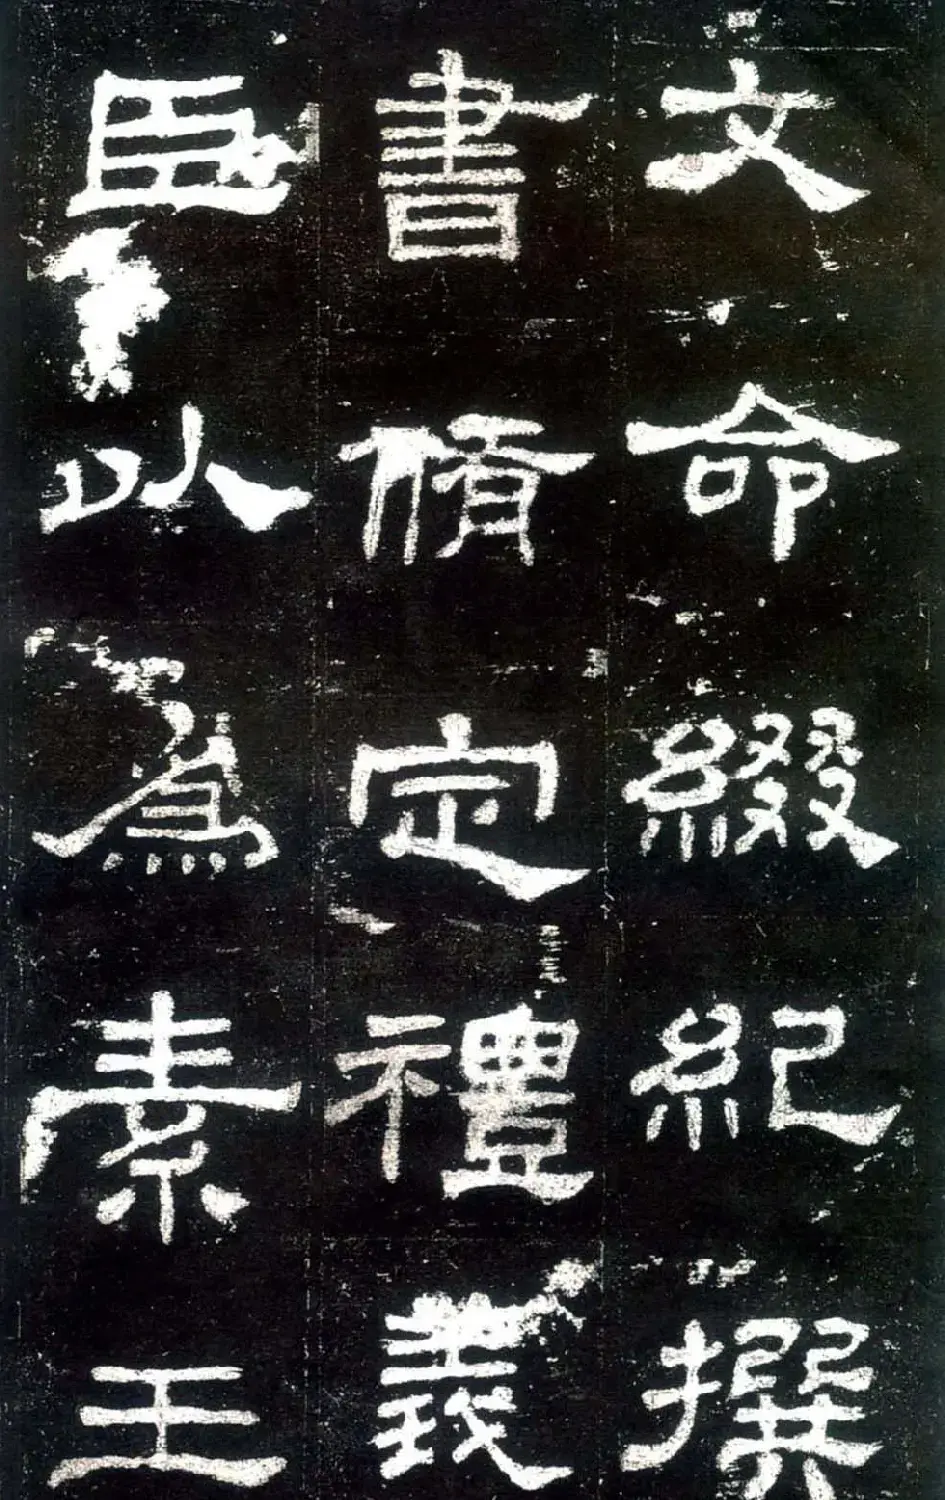 文命綴紀撰
書脩定禮義
臣以為素王